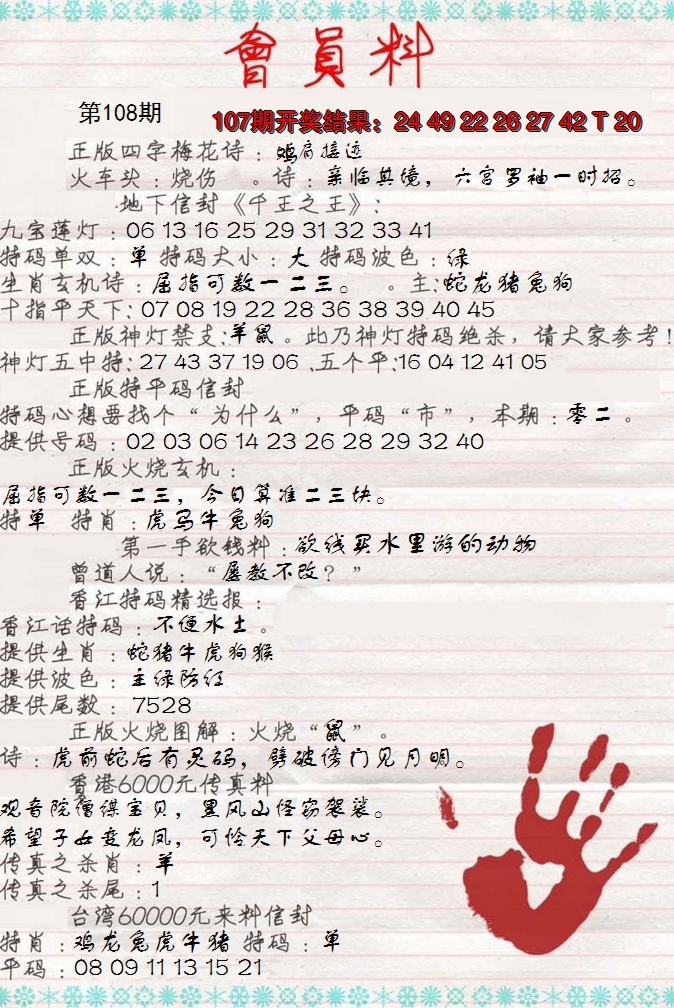 會員料
第108期
107期开奖结果：24 49 22 26 27 42 T 20
正版四字梅花诗：鸡肩接迹
火车头：烧伤 。诗：亲临其境，六宫罗袖一时招。
地下信封《千王之王》：
九宝莲灯：06 13 16 25 29 31 32 33 41
特码单双：单 特码大小：大 特码波色：绿
生肖玄机诗：屈指可数一二三。 。主:蛇龙猪兔狗
十指平天下: 07 08 19 22 28 36 38 39 40 45
正版神灯禁支:羊鼠。此乃神灯特码绝杀，请大家参考!
神灯五中特: 27 43 37 19 06 .五个平:16 04 12 41 05
正版特平码信封
特码心想要找个“为什么”，平码“市”，本期：零二。
提供号码：02 03 06 14 23 26 28 29 32 40
正版火烧玄机：
屈指可数一二三，今日算准二三块。
特单 特肖：虎马牛兔狗
第一手欲钱料：欲钱买水里游的动物
曾道人说：“屡教不改？”
香江特码精选报：
香江话特码：不便水土。
提供生肖：蛇猪牛虎狗猴
提供波色：主绿防红
提供尾数：7528
正版火烧图解：火烧“鼠”。
诗：虎前蛇后有灵码，劈破傍门见月明。
香港6000元传真料
观音院僧谋宝贝，黑风山怪窃袈裟。
希望子女变龙凤，可怜天下父母心。
传真之杀肖：羊
传真之杀尾：1
台湾60000元来料信封
特肖：鸡龙兔虎牛猪 特码：单
平码：08 09 11 13 15 21